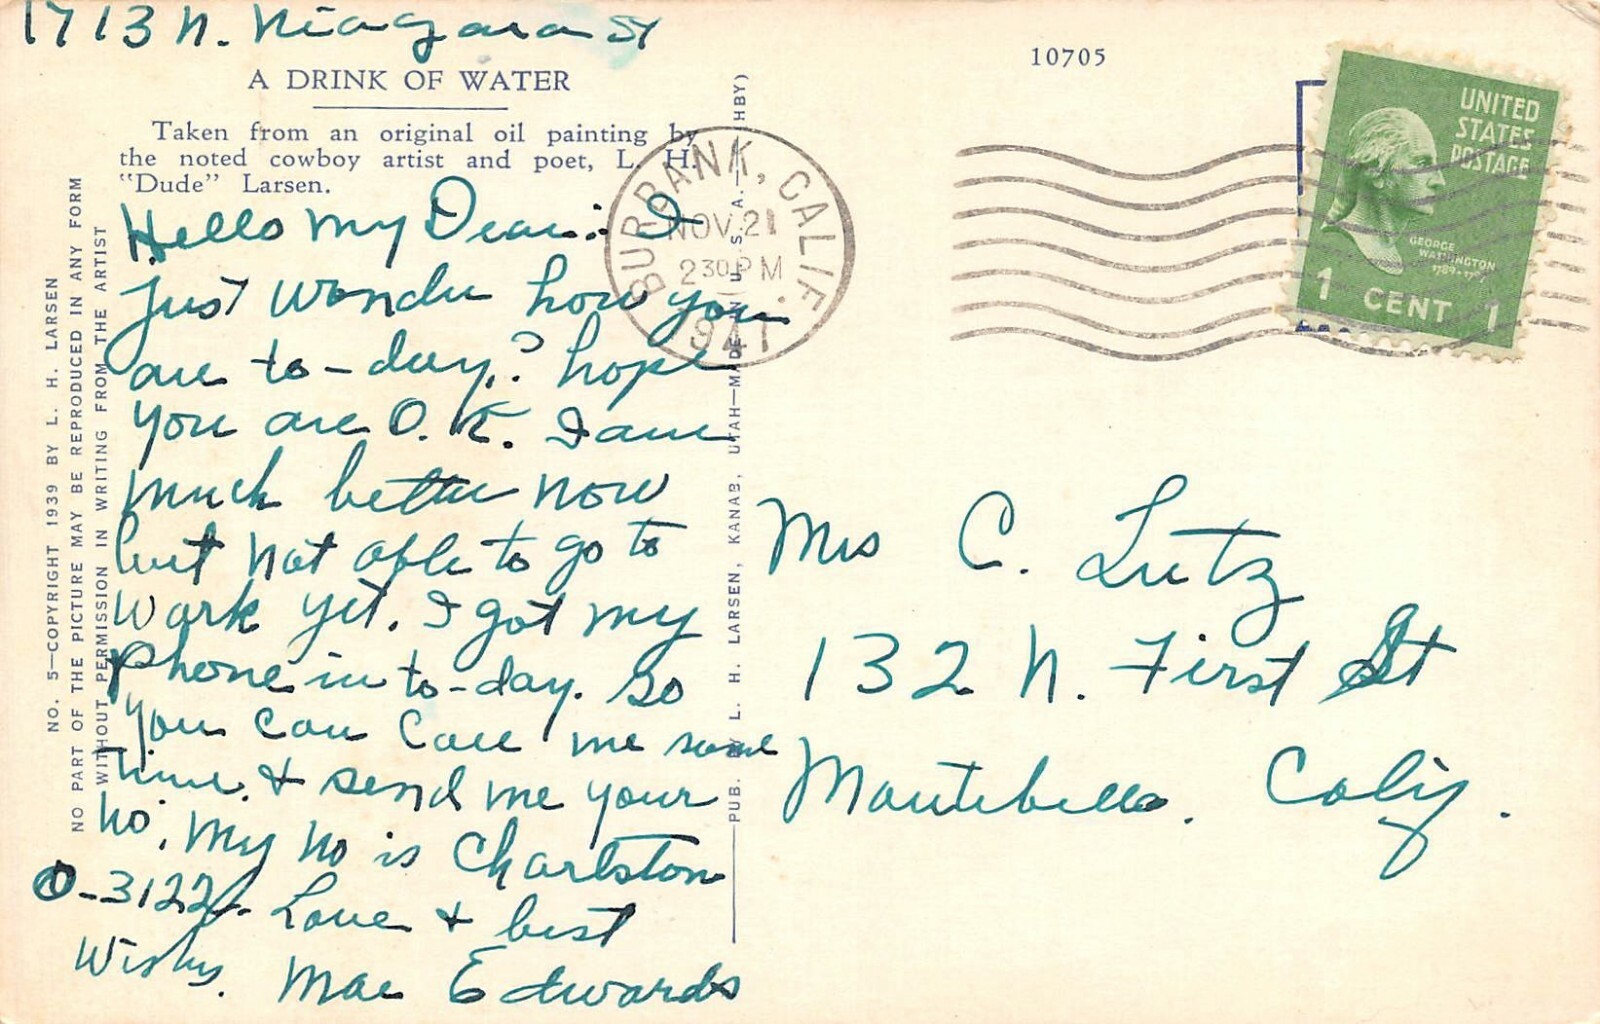 1713 N. Niagara St
A DRINK OF WATER
Taken from an original oil painting by
the noted cowboy artist and poet, L. H.
"Dude" Larsen.
Hello My Dear: I
just wonder how you
are to-day,? hope
you are O.K. I am
much better now
but not able to go to
work yet. I got my
phone in to-day. So
you can call me some
time. & send me your
no. My no is Charlston
0-3122. Love & best
Wishes. Mae Edwards
NO. 5—COPYRIGHT 1939 BY L. H. LARSEN
NO PART OF THE PICTURE MAY BE REPRODUCED IN ANY FORM
WITHOUT PERMISSION IN WRITING FROM THE ARTIST
PUB. BY L. H. LARSEN, KANAB, UTAH—MADE IN U. S. A.— HBY)
BURBANK, CALIF.
NOV 21
2 30 PM
1941
10705
UNITED
STATES
POSTAGE
GEORGE
WASHINGTON
1789-1797
1 CENT 1
Mrs C. Lutz
132 N. First St
Montebello. Calif.